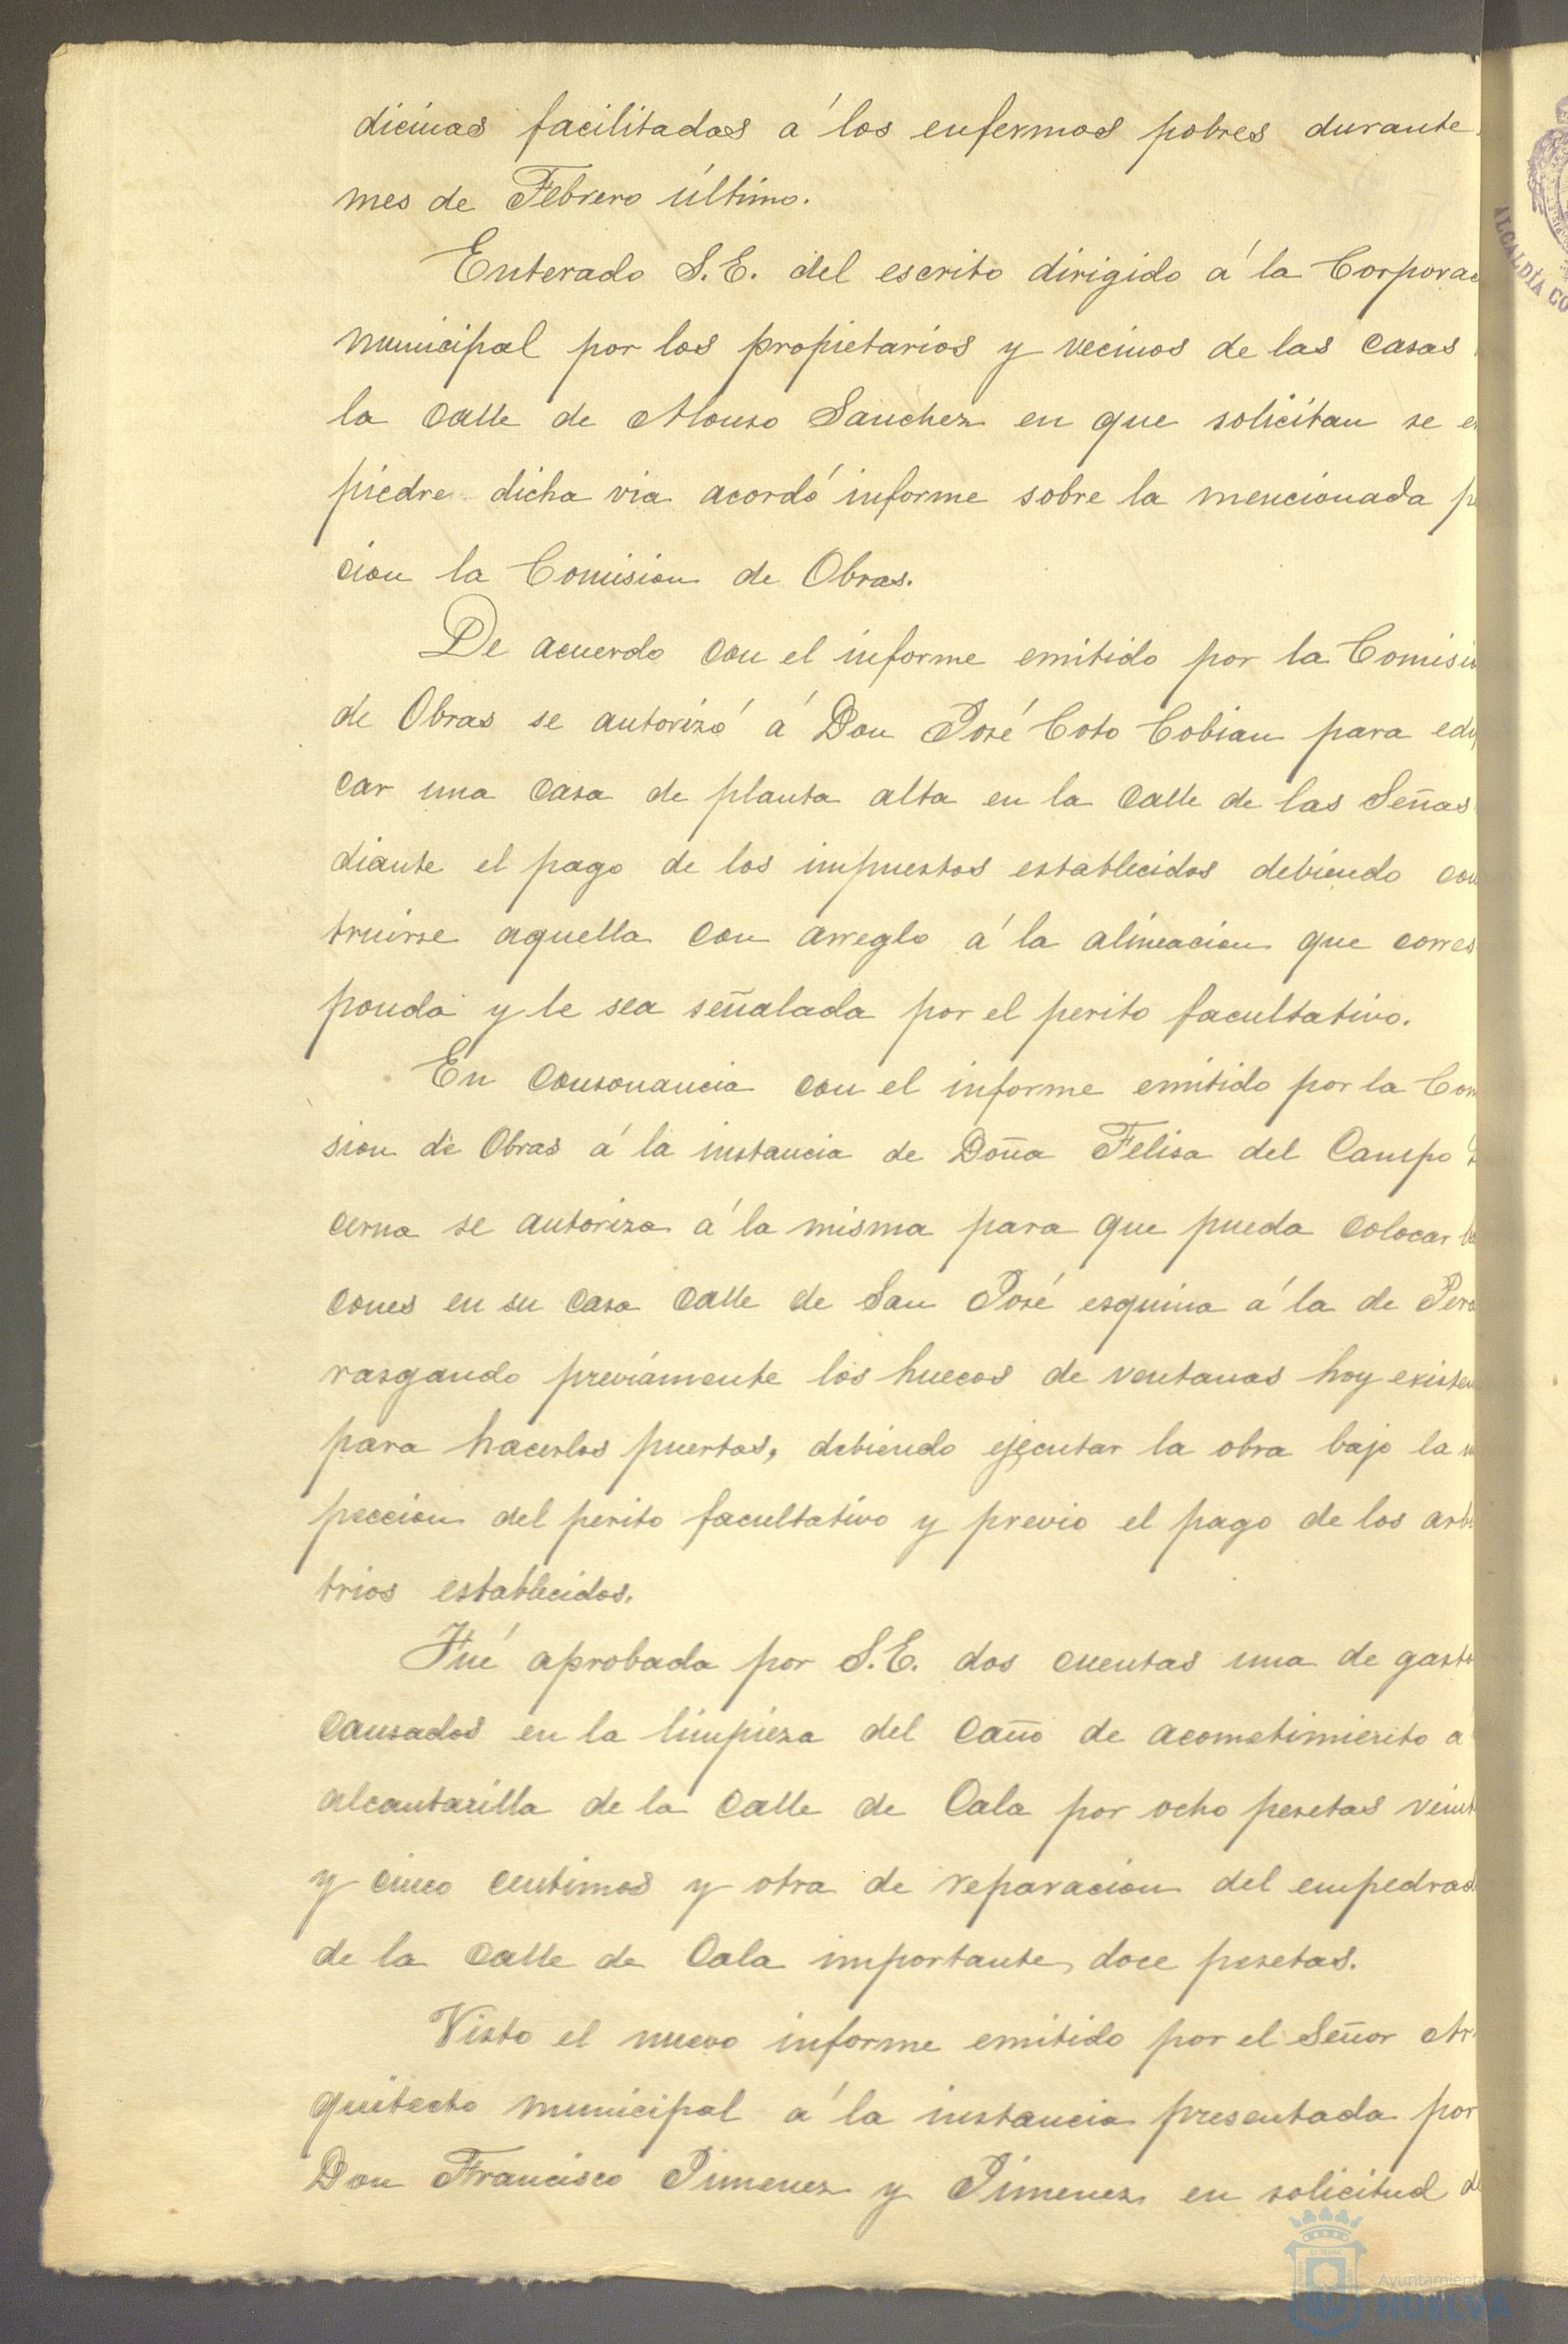 dicinas facilitadas á los enfermos pobres durante
mes de Febrero último.
Enterado S.E. del escrito dirigido á la Corporac
municipal por los propietarios y vecinos de las casas
la calle de Alonso Sanchez en que solicitan se e
piedre dicha via acordó informe sobre la mencionada p
cion la Comision de Obras.
De acuerdo con el informe emitido por la Comisio
de Obras se autorizó á Don José Coto Cobian para edi
car una casa de planta alta en la calle de las Señas
diante el pago de los impuestos establecidos debiendo con
truirse aquella con arreglo á la alineacion que corres
ponda y le sea señalada por el perito facultativo.
En consonancia con el informe emitido por la Com
sion de Obras á la instancia de Doña Felisa del Campo
cerna se autoriza á la misma para que pueda colocar
cones en su casa calle de San José esquina á la de Pera
rasgando previamente los huecos de ventanas hoy existen
para hacerlos puertas, debiendo ejecutar la obra bajo la
peccion del perito facultativo y previo el pago de los arbi
trios establecidos.
Fué aprobada por S.E. dos cuentas una de gasto
causados en la limpieza del caño de acometimiento a
alcantarilla de la calle de Cala por ocho pesetas veint
y cinco centimos y otra de reparacion del empedrad
de la calle de Cala importante doce pesetas.
Visto el nuevo informe emitido por el Señor Ar
quitecto municipal á la instancia presentada por
Don Francisco Jimenez y Jimenez en solicitud de
ALCALDÍA CO
Ayuntamiento
HUELVA